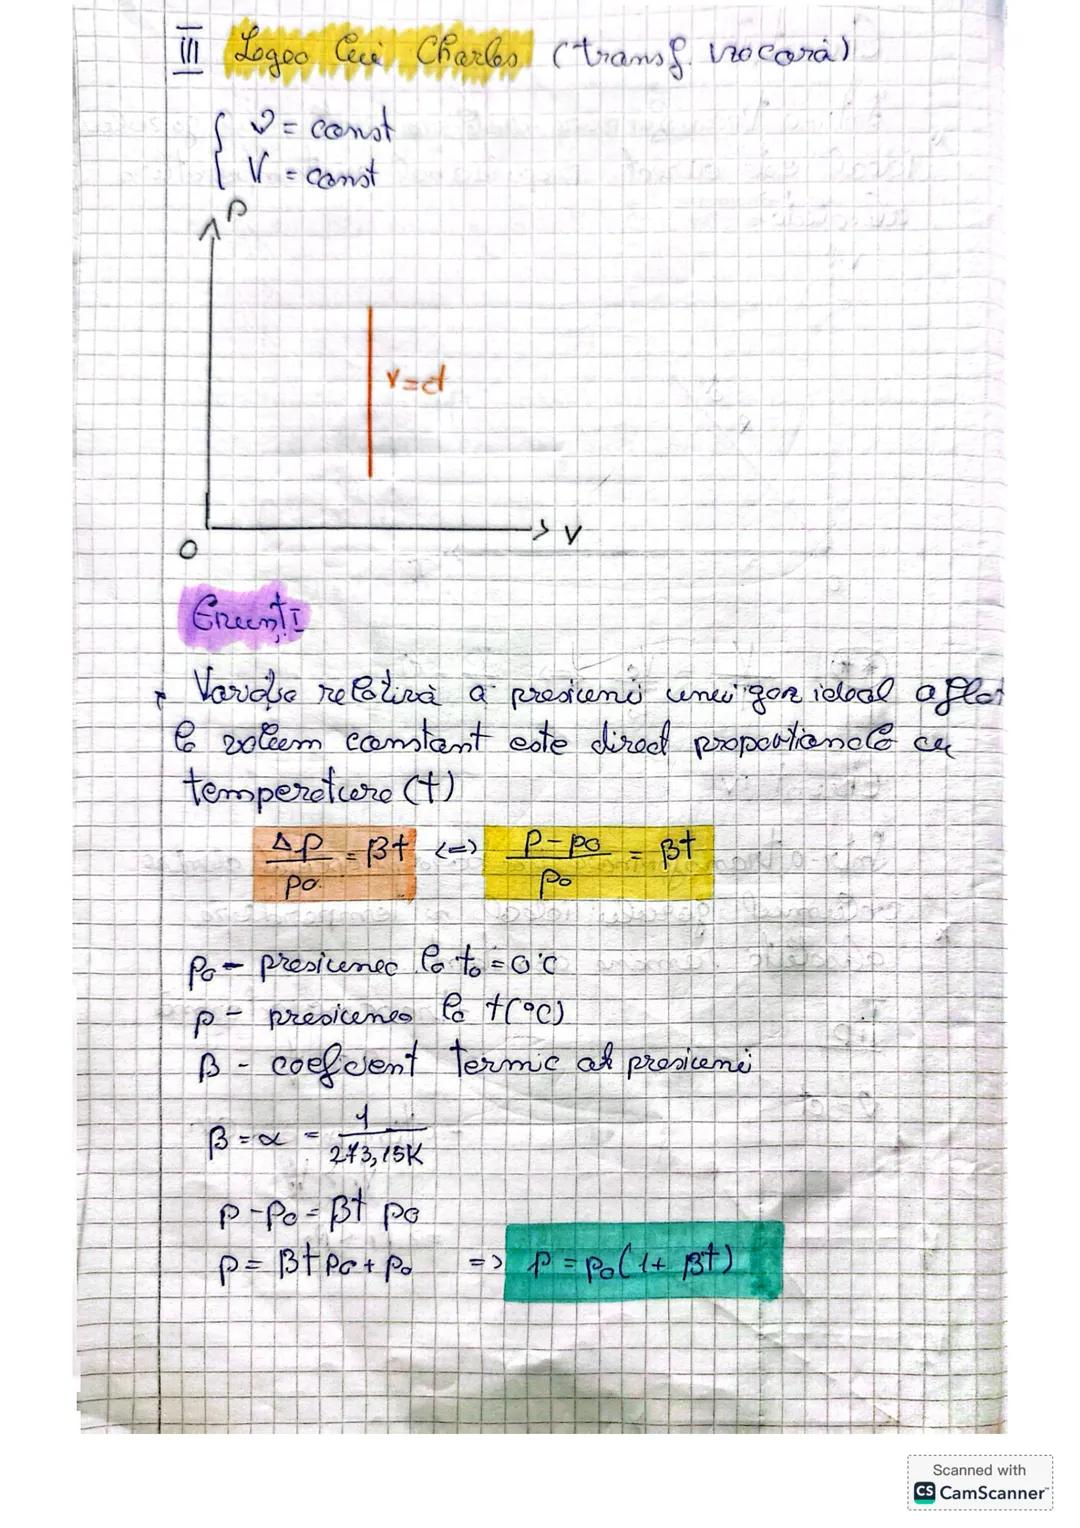 III Legea lui Charles (transf. izocoră)
ν = const
V = const
P
V=ct
V
O
Enunț I
Variația relativă a presiunii unui gaz ideal aflat
la volum constant este direct proporțională cu
temperatura (t)
Δp/p₀ = βt <=> p-p₀/p₀ = βt
p₀ - presiunea la t₀ = 0°C
p - presiunea la t(°C)
β - coeficient termic al presiunii
β = α = 1/273,15K
p - p₀ = βt p₀
p = βt p₀ + p₀ => p = p₀(1 + βt)
Scanned with
CS CamScanner™